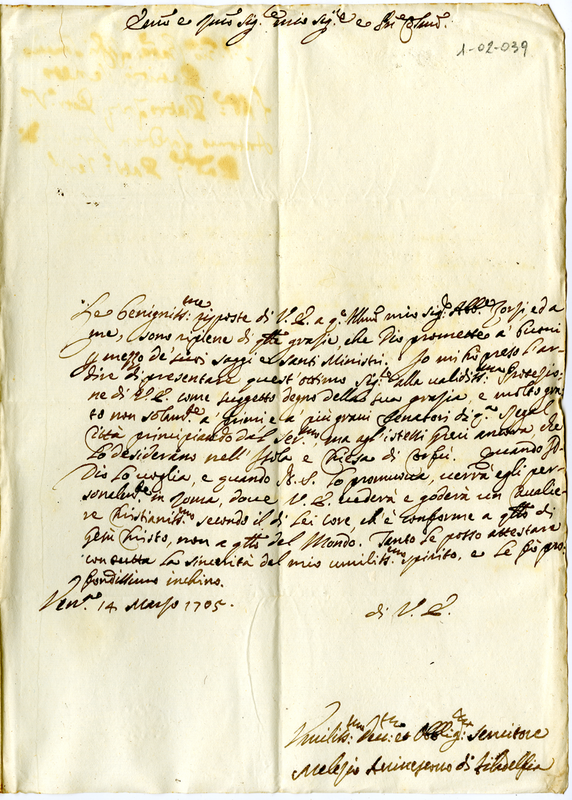 Em̃o e Rmõ Sig.re mio Sig.re e Prõe Colmõ.
1-02-039
Le benigniss:me risposte di V. E. a q.o Illmõ mio sig.r Abb.e Zorsi, ed a
me, sono ripiene di q̃lle grazie, che Dio promette a' buoni
p mezzo de' suoi saggi e santi Ministri. Io mi hò preso l'ar-
dire di presentare quest'ottimo Sig.re alla validiss:ma Protezio-
ne di V. E. come suggetto degno della sua grazia, e molto gra-
to non solam.te a' primi e a' più gravi Senatori di q.a Regia
Città principiando dal Ser.mo ma agl'istessi Greci ancora che
lo desiderano nell'Isola e Chiesa di Corfù. Quando
Dio lo voglia, e quando N. S. lo promuova, verrà egli per-
sonalm.te in Roma, dove V. E. vederà e goderà un Cavalie-
re Christianiss:mo secondo il di Lei core, ch'è conforme a q̃llo di
Gesù Christo, non a q̃llo del Mondo. Tanto le posso attestare
con tutta la sincerità del mio umiliss:mo spirito, e le fò pro-
fondissimo inchino.
Ven.a 14 Marzo 1705.
di V. E.
Umiliss:mo Dev:mo et Obblig:mo Servitore
Melezio Arcivescovo di Filadelfia